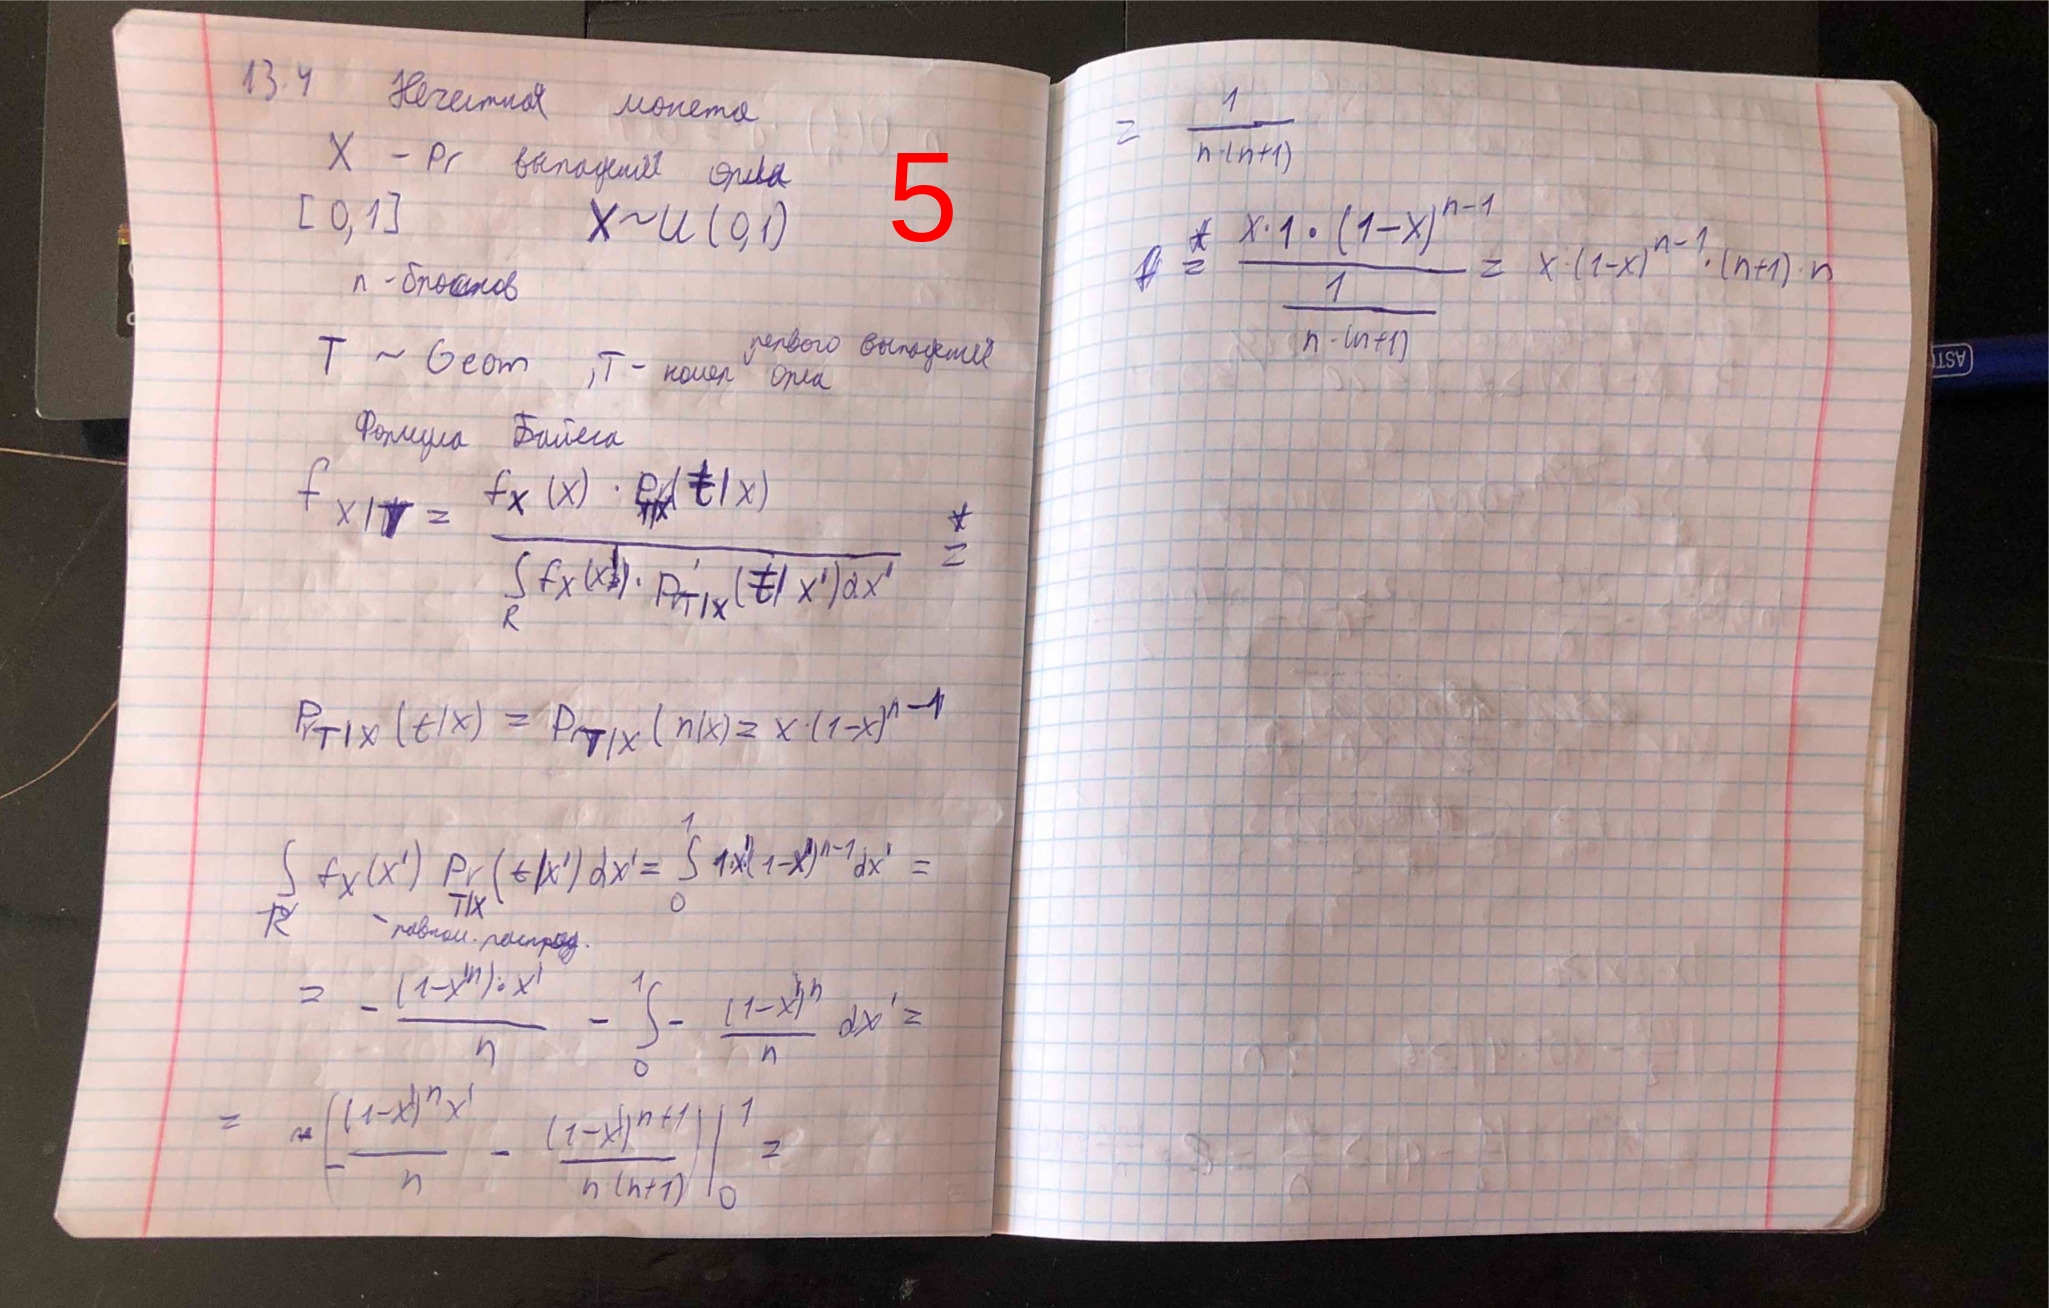 13.4 Нечестная монета
X - Pr выпадений орла
5
[0,1] X~U(0,1)
n - бросков
T ~ Geom , T - номер первого выпадений орла
Формула Байеса
f_{X|T} = \frac{f_X(x) · Pr_{T|X}(t|x)}{\int_R f_X(x') · Pr_{T|X}(t|x')dx'} \stackrel{*}{=}
Pr_{T|X}(t|x) = Pr_{T|X}(n|x) = x·(1-x)^{n-1}
\int_R f_X(x') Pr_{T|X}(t|x')dx' = \int_0^1 1·x'(1-x')^{n-1}dx' =
равном. распред.
= -\frac{(1-x'^n)·x'}{n} - \int_0^1 - \frac{(1-x')^n}{n} dx' =
= \left(-\frac{(1-x')^n x'}{n} - \frac{(1-x')^{n+1}}{n(n+1)}\right)|_0^1 =
= \frac{1}{n·(n+1)}
\stackrel{*}{=} \frac{x·1·(1-x)^{n-1}}{\frac{1}{n·(n+1)}} = x·(1-x)^{n-1}·(n+1)·n
AST